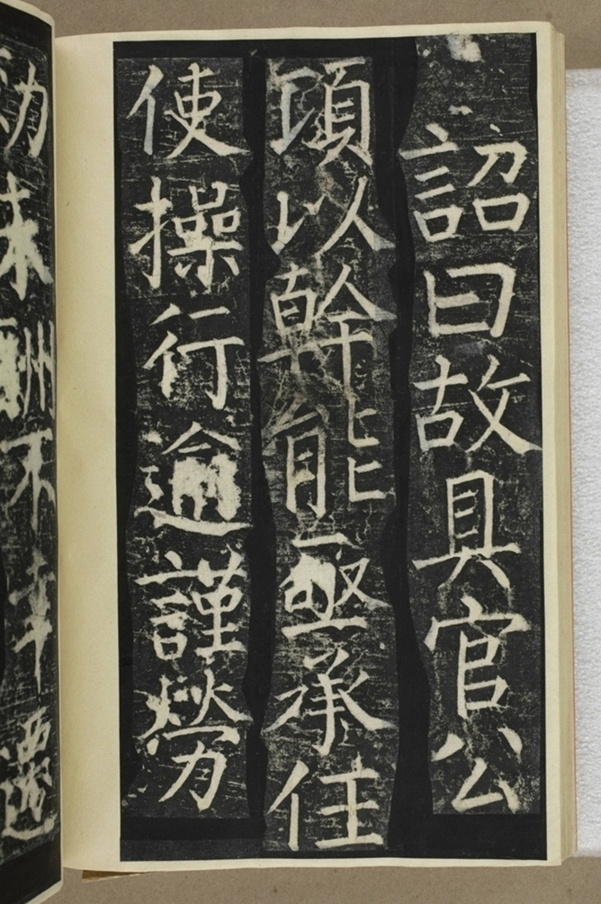 詔曰故具官公
頃以幹能亟承任
使操行逾謹勞
効未酬不幸遷